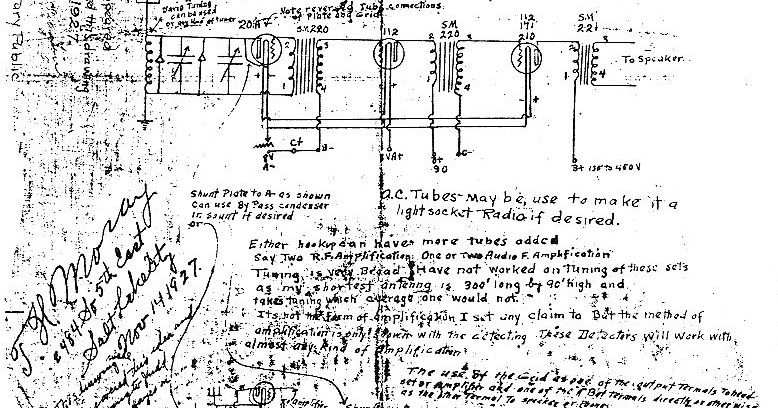 Note reversed Tube connections
of Plate and Grid
can be used
or any kind of tuner
20AV
S.M. 220
112
S.M.
220
112
171
210
S.M.
221
2
3
1
4
To Speaker
C+
B-
A-
A+
B+
90
C-
B+ 135 to 450V
Shunt Plate to A- as shown
Can use By Pass condenser
in shunt if desired
or
A.C. Tubes May be, use to make it a
light socket Radio if desired.
Either hookup can have more tubes added
Say Two R.F. Amplification One or Two Audio F. Amplification
Tuning is very Broad I Have not worked on Tuning of these sets
as my shortest antenna is 300' long by 90' high and
takes tuning which average one would not.
Its not the form of amplification I set any claim to But the method of
amplification is only shown with the detecting These Detectors will work with
almost any kind of Amplification
The use of the Grid as one of the output Termals to head
set or amplifer and one of the Termals directly or otherwise
as the other Termal to speaker or
T. H. Moray
2484 So 5th East
Salt Lake City
Nov 14 1927.
This drawing
ary Public